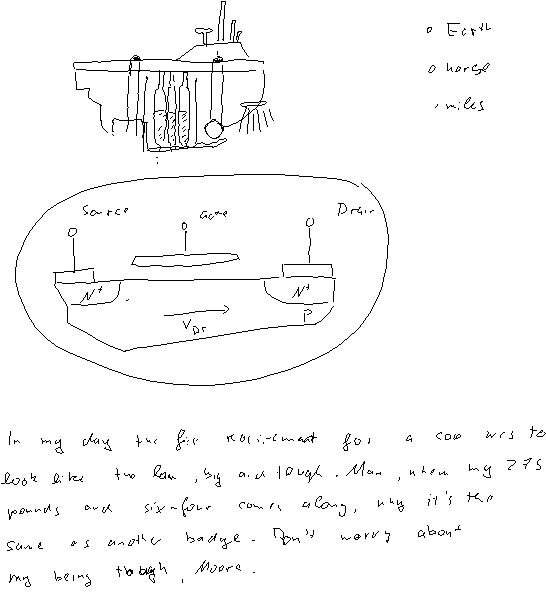 Earth
horse
miles
Source Gate Drain
N+ N+
P
VDr
In my day the for a coo was to
look like the law, big and tough. Man, when my 275
pounds and six-four comes along, why it's the
same as another badge. Don't worry about
my being tough, Moore.